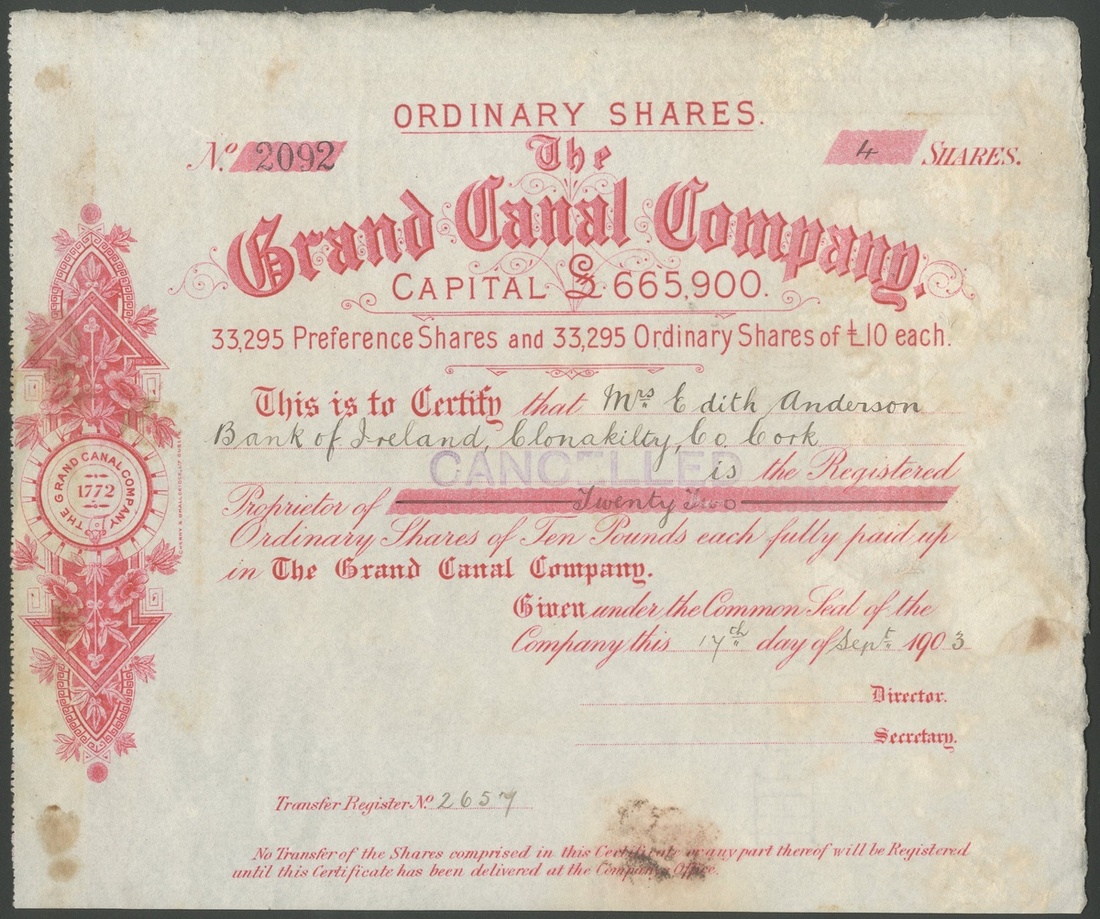 ORDINARY SHARES.
No. 2092
4 SHARES.
The
Grand Canal Company.
CAPITAL £665,900.
33,295 Preference Shares and 33,295 Ordinary Shares of £10 each.
This is to Certify that Mrs Edith Anderson
Bank of Ireland, Clonakilty, Co Cork
CANCELLED
is the Registered
Proprietor of Twenty Two
Ordinary Shares of Ten Pounds each fully paid up
in The Grand Canal Company.
Given under the Common Seal of the
Company this 17th day of Sept 1903
Director.
Secretary.
Transfer Register No. 2657
No Transfer of the Shares comprised in this Certificate or any part thereof will be Registered
until this Certificate has been delivered at the Company's Office.
THE GRAND CANAL COMPANY
1772